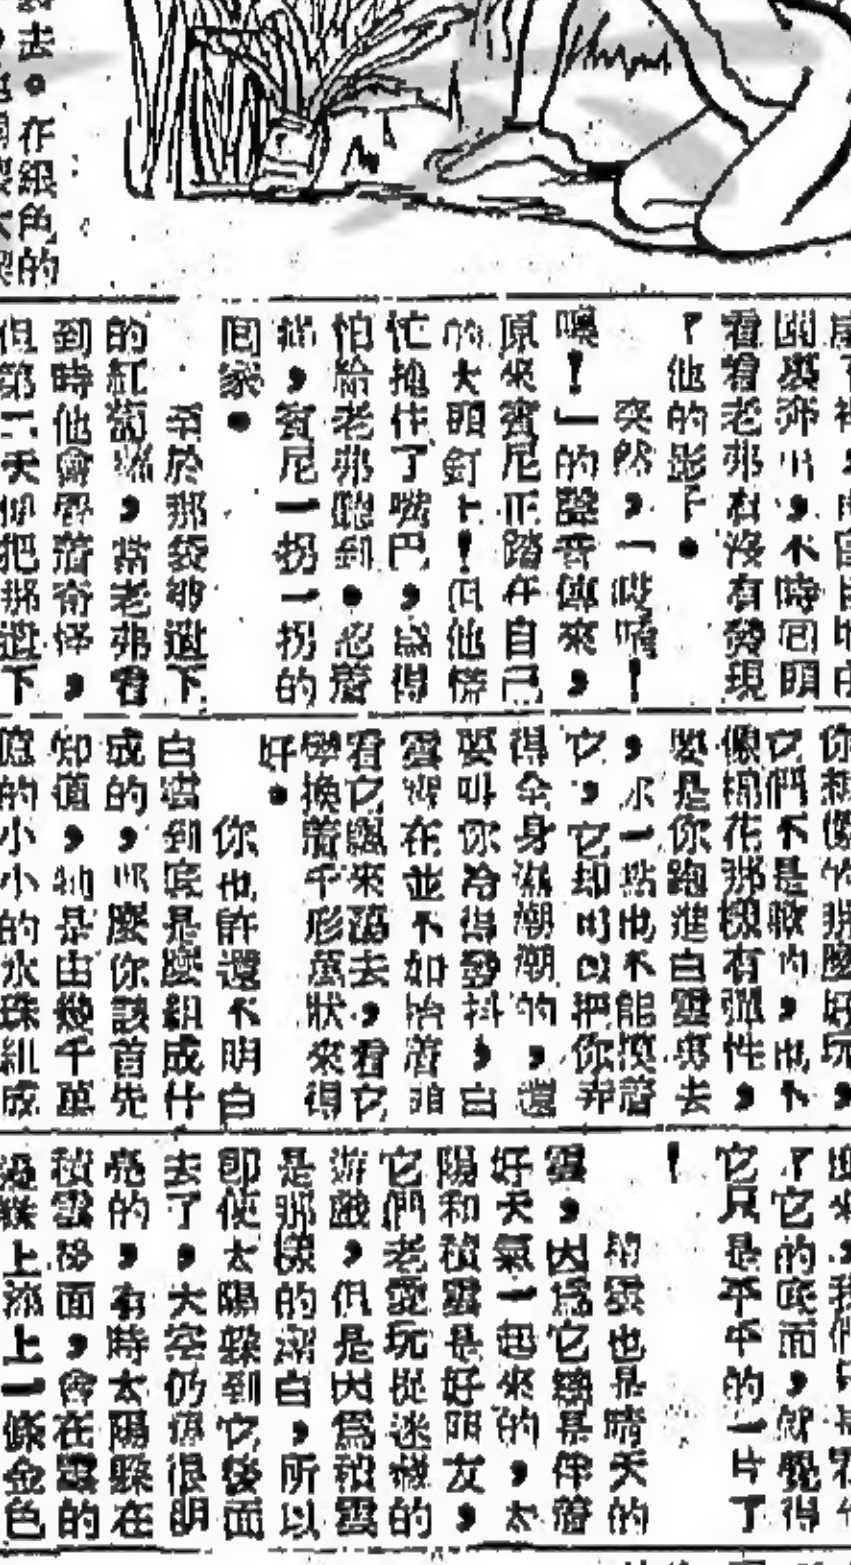 去。在銀色的
看看老弗有沒有發現
了他的影子。
突然,「哎唷!
噢!」的聲音傳來,
原來賓尼正踏在自己
的大頭釘上!但他慌
忙掩住了嘴巴,為得
怕給老弗聽到。忍着
痛,賓尼一拐一拐的
回家。
至於那袋被遺下
的紅葡萄,當老弗看
到時他會覺着奇怪,
但第二天仍把那遺下
它們不是軟的,也不
像棉花那樣有彈性,
要是你跑進白雲裏去
,你一點也不能摸着
它,它却可以把你弄
得全身濕潮潮的,還
要叫你冷得發抖,白
雲實在並不如抬着頭
看它飄來蕩去,看它
變換着千形萬狀來得
好。
你也許還不明白
白雲到底是麼組成什
成的,那麼你該首先
知道,牠是由幾千萬
的小小的水珠組成
了它的底面,就覺得
它只是平平的一片了
!
積雲也是晴天的
雲,因為它總是伴着
好天氣一起來的,太
陽和積雲是好朋友,
它們老愛玩捉迷樣的
遊戲,但是因為積雲
是那樣的潔白,所以
即使太陽躲到它後面
去了,天空仍舊很明
亮的,有時太陽躲在
積雲後面,會在雲的
邊緣上添上一條金色